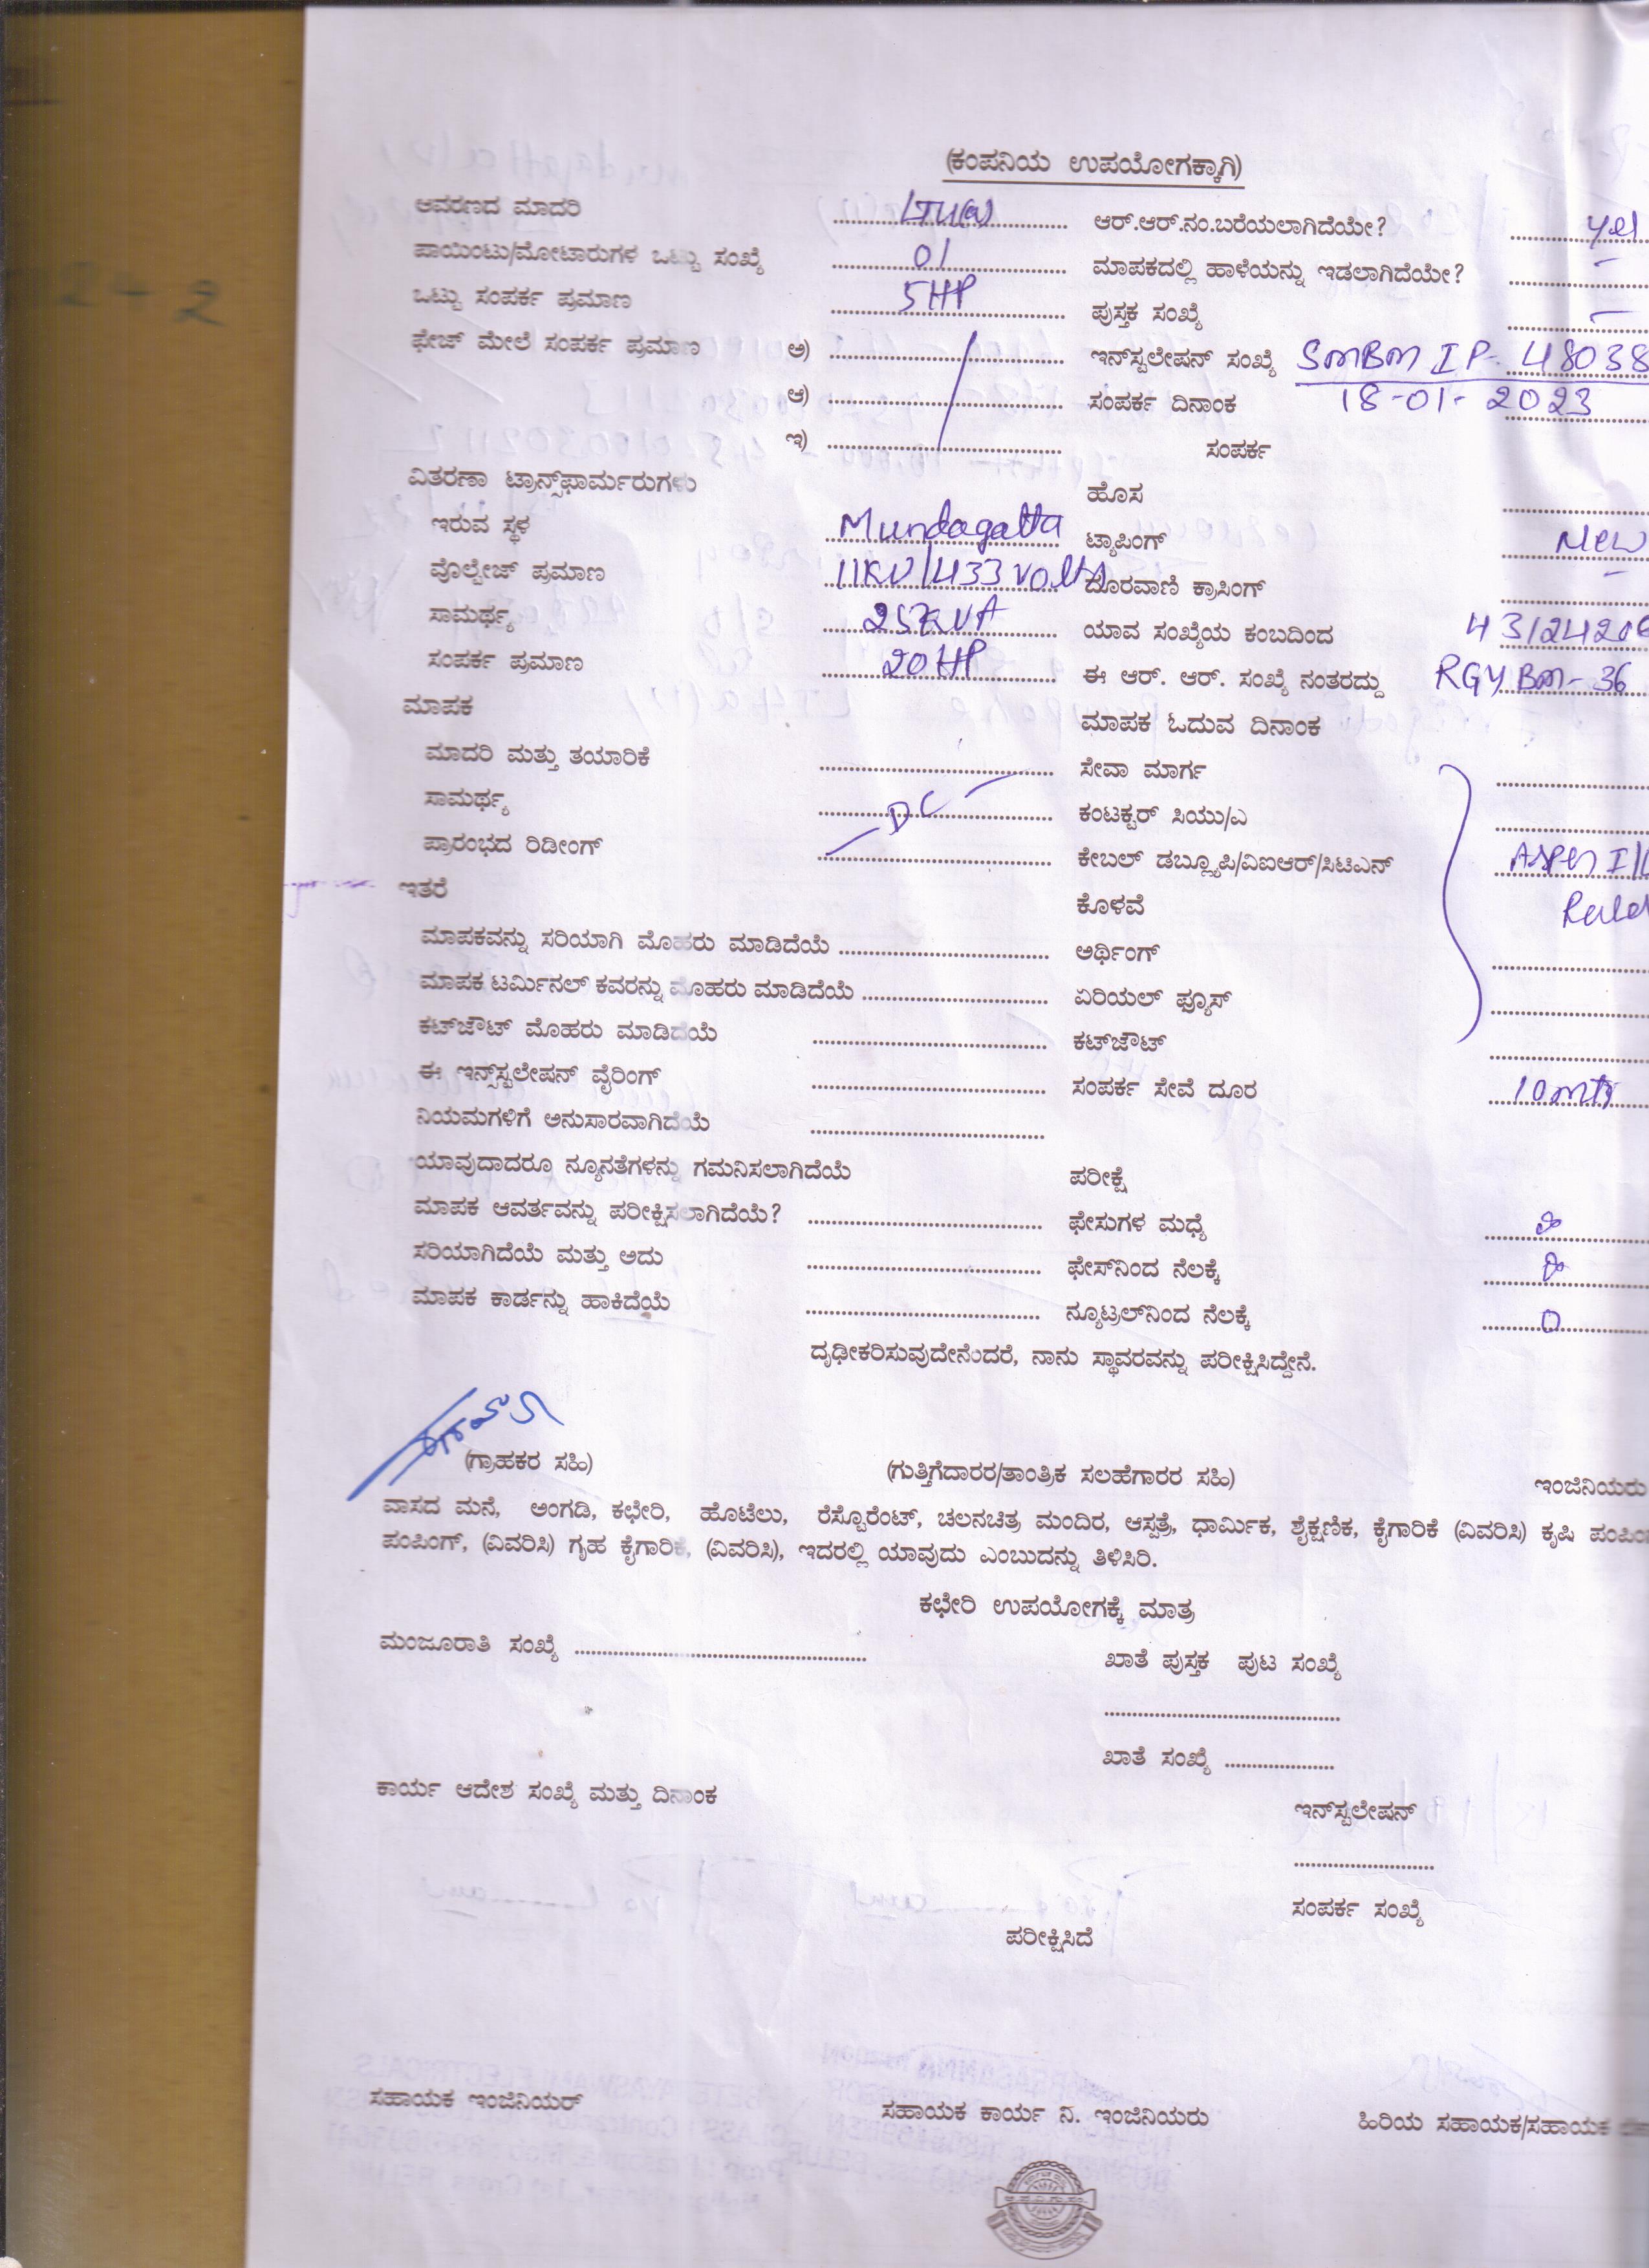 (ಕಂಪನಿಯ ಉಪಯೋಗಕ್ಕಾಗಿ)
ಆವರಣದ ಮಾದರಿ ಆರ್.ಆರ್.ನಂ.ಬರೆಯಲಾಗಿದೆಯೇ? yes
ಪಾಯಿಂಟು/ಮೋಟಾರುಗಳ ಒಟ್ಟು ಸಂಖ್ಯೆ 01 ಮಾಪಕದಲ್ಲಿ ಹಾಳೆಯನ್ನು ಇಡಲಾಗಿದೆಯೇ? –
ಒಟ್ಟು ಸಂಪರ್ಕ ಪ್ರಮಾಣ 5HP ಪುಸ್ತಕ ಸಂಖ್ಯೆ –
ಫೇಜ್ ಮೇಲೆ ಸಂಪರ್ಕ ಪ್ರಮಾಣ ಅ) ಇನ್‌ಸ್ಟಲೇಷನ್ ಸಂಖ್ಯೆ SMBM IP- 48038
ಆ) ಸಂಪರ್ಕ ದಿನಾಂಕ 18-01-2023
ಇ) ಸಂಪರ್ಕ
ವಿತರಣಾ ಟ್ರಾನ್ಸ್‌ಫಾರ್ಮರುಗಳು ಹೊಸ
ಇರುವ ಸ್ಥಳ Mundagatta ಟ್ಯಾಪಿಂಗ್ New
ವೊಲ್ಟೇಜ್ ಪ್ರಮಾಣ 11KV/433 volts ದೂರವಾಣಿ ಕ್ರಾಸಿಂಗ್ –
ಸಾಮರ್ಥ್ಯ 25KVA ಯಾವ ಸಂಖ್ಯೆಯ ಕಂಬದಿಂದ
ಸಂಪರ್ಕ ಪ್ರಮಾಣ 20HP ಈ ಆರ್. ಆರ್. ಸಂಖ್ಯೆ ನಂತರದ್ದು RGYBM-36
ಮಾಪಕ ಮಾಪಕ ಓದುವ ದಿನಾಂಕ
ಮಾದರಿ ಮತ್ತು ತಯಾರಿಕೆ ಸೇವಾ ಮಾರ್ಗ
ಸಾಮರ್ಥ್ಯ DC ಕಂಟಕ್ಟರ್ ಸಿಯು/ಎ
ಪ್ರಾರಂಭದ ರಿಡೀಂಗ್ ಕೇಬಲ್ ಡಬ್ಲ್ಯೂಪಿ/ವಿಐಆರ್/ಸಿಟಿಎನ್
ಇತರೆ ಕೊಳವೆ
ಮಾಪಕವನ್ನು ಸರಿಯಾಗಿ ಮೊಹರು ಮಾಡಿದೆಯೆ ಅರ್ಥಿಂಗ್
ಮಾಪಕ ಟರ್ಮಿನಲ್ ಕವರನ್ನು ಮೊಹರು ಮಾಡಿದೆಯೆ ಏರಿಯಲ್ ಫ್ಯೂಸ್
ಕಟ್‌ಜೌಟ್ ಮೊಹರು ಮಾಡಿದೆಯೆ ಕಟ್‌ಜೌಟ್
ಈ ಇನ್ಸ್‌ಸ್ಟಲೇಷನ್ ವೈರಿಂಗ್ ಸಂಪರ್ಕ ಸೇವೆ ದೂರ 10mtr
ನಿಯಮಗಳಿಗೆ ಅನುಸಾರವಾಗಿದೆಯೆ
ಯಾವುದಾದರೂ ನ್ಯೂನತೆಗಳನ್ನು ಗಮನಿಸಲಾಗಿದೆಯೆ ಪರೀಕ್ಷೆ
ಮಾಪಕ ಆವರ್ತವನ್ನು ಪರೀಕ್ಷಿಸಲಾಗಿದೆಯೆ? ಫೇಸುಗಳ ಮಧ್ಯೆ
ಸರಿಯಾಗಿದೆಯೆ ಮತ್ತು ಅದು ಫೇಸ್‌ನಿಂದ ನೆಲಕ್ಕೆ
ಮಾಪಕ ಕಾರ್ಡನ್ನು ಹಾಕಿದೆಯೆ ನ್ಯೂಟ್ರಲ್‌ನಿಂದ ನೆಲಕ್ಕೆ 0
ದೃಢೀಕರಿಸುವುದೇನೆಂದರೆ, ನಾನು ಸ್ಥಾವರವನ್ನು ಪರೀಕ್ಷಿಸಿದ್ದೇನೆ.
(ಗ್ರಾಹಕರ ಸಹಿ) (ಗುತ್ತಿಗೆದಾರರ/ತಾಂತ್ರಿಕ ಸಲಹೆಗಾರರ ಸಹಿ) ಇಂಜಿನಿಯರು
ವಾಸದ ಮನೆ, ಅಂಗಡಿ, ಕಛೇರಿ, ಹೊಟೆಲು, ರೆಸ್ಟೊರೆಂಟ್, ಚಲನಚಿತ್ರ ಮಂದಿರ, ಆಸ್ಪತ್ರೆ, ಧಾರ್ಮಿಕ, ಶೈಕ್ಷಣಿಕ, ಕೈಗಾರಿಕೆ (ವಿವರಿಸಿ) ಕೃಷಿ
ಪಂಪಿಂಗ್, (ವಿವರಿಸಿ) ಗೃಹ ಕೈಗಾರಿಕೆ, (ವಿವರಿಸಿ), ಇದರಲ್ಲಿ ಯಾವುದು ಎಂಬುದನ್ನು ತಿಳಿಸಿರಿ.
ಕಛೇರಿ ಉಪಯೋಗಕ್ಕೆ ಮಾತ್ರ
ಮಂಜೂರಾತಿ ಸಂಖ್ಯೆ ಖಾತೆ ಪುಸ್ತಕ ಪುಟ ಸಂಖ್ಯೆ
ಖಾತೆ ಸಂಖ್ಯೆ
ಕಾರ್ಯ ಆದೇಶ ಸಂಖ್ಯೆ ಮತ್ತು ದಿನಾಂಕ
ಇನ್‌ಸ್ಟಲೇಷನ್
ಸಂಪರ್ಕ ಸಂಖ್ಯೆ
ಪರೀಕ್ಷಿಸಿದೆ
ಸಹಾಯಕ ಇಂಜಿನಿಯರ್ ಸಹಾಯಕ ಕಾರ್ಯ ನಿ. ಇಂಜಿನಿಯರು ಹಿರಿಯ ಸಹಾಯಕ/ಸಹಾಯಕ